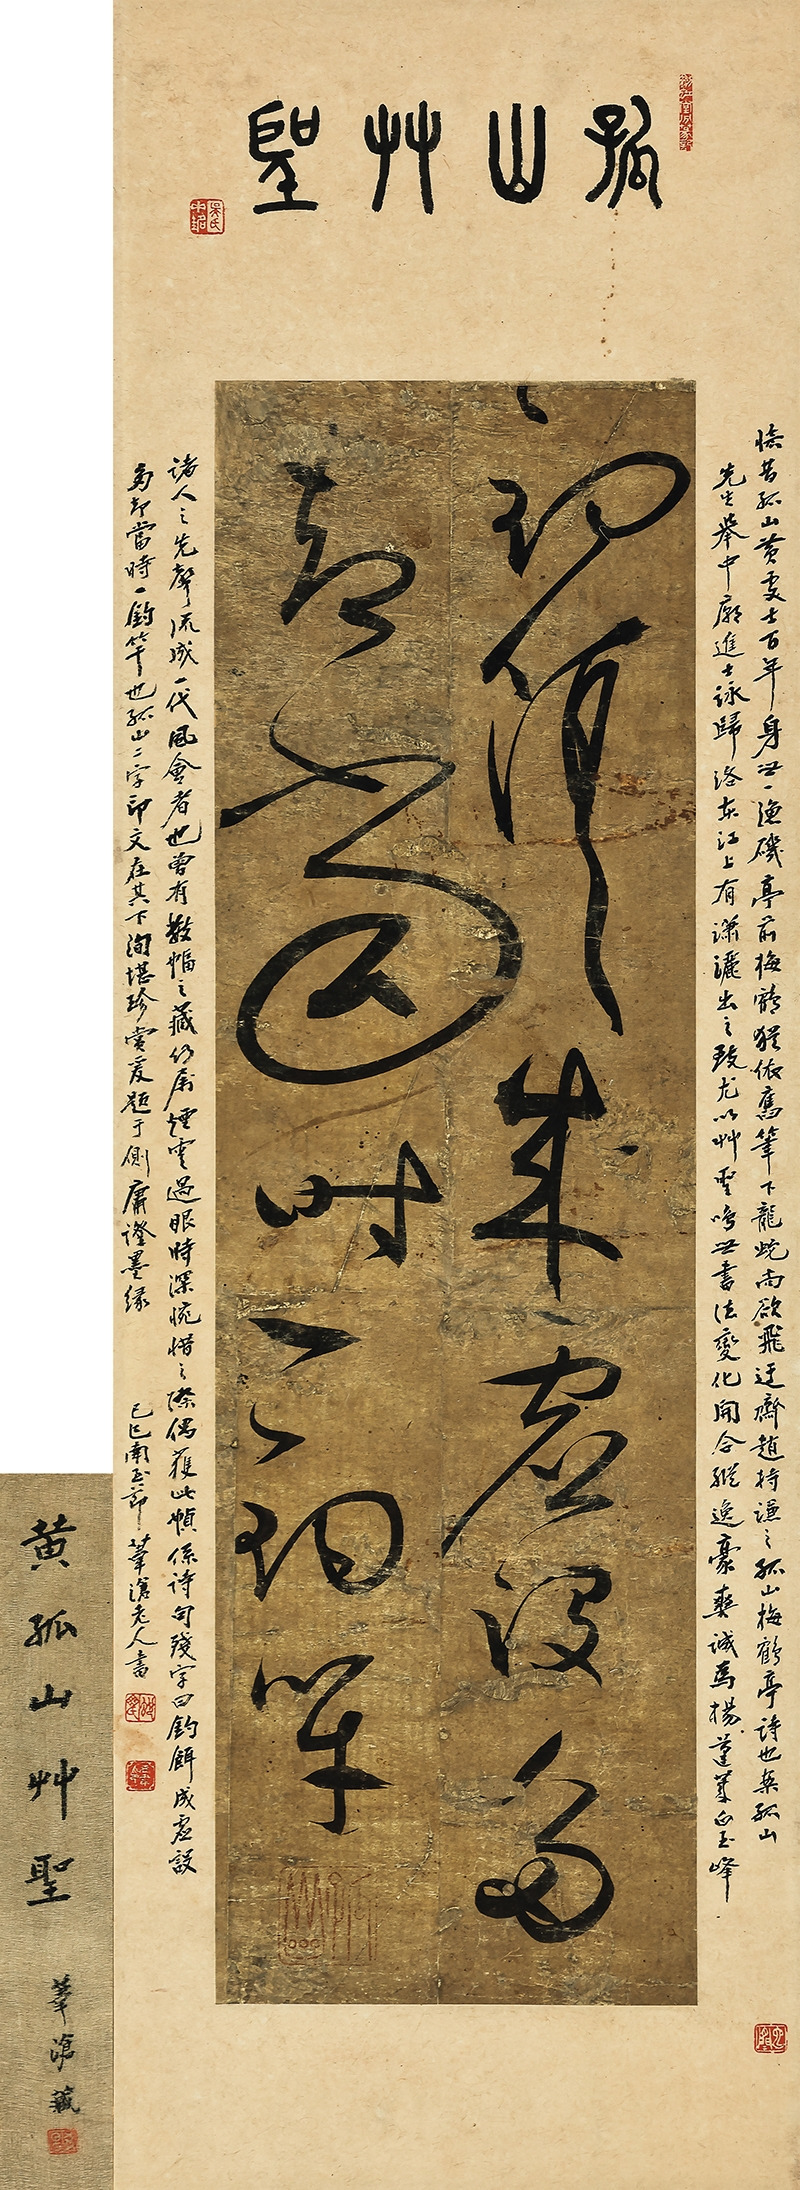 孤山艸聖
憶昔孤山黃處士百年身世一漁磯亭前梅鶴猶依舊筆下龍蛇尚欲飛迂齋趙持謙之孤山梅鶴亭詩也案孤山
先生擧中廟進士詠歸洛東江上有瀟灑出之致尤以艸聖鳴世書法變化開合縱逸豪爽誠爲楊蓬萊白玉峰
釣餌成虛設
魚却當時一釣竿
諸人之先聲流成一代風會者也曾有數幅之藏仍屬煙雲過眼時深惋惜之際偶獲此幀係詩句殘字曰釣餌成虛設
當時一釣竿也孤山二字印文在其下洵堪珍賞爰題于側庸證墨緣
己巳南至節 葦滄老人書
黃孤山艸聖
葦滄藏